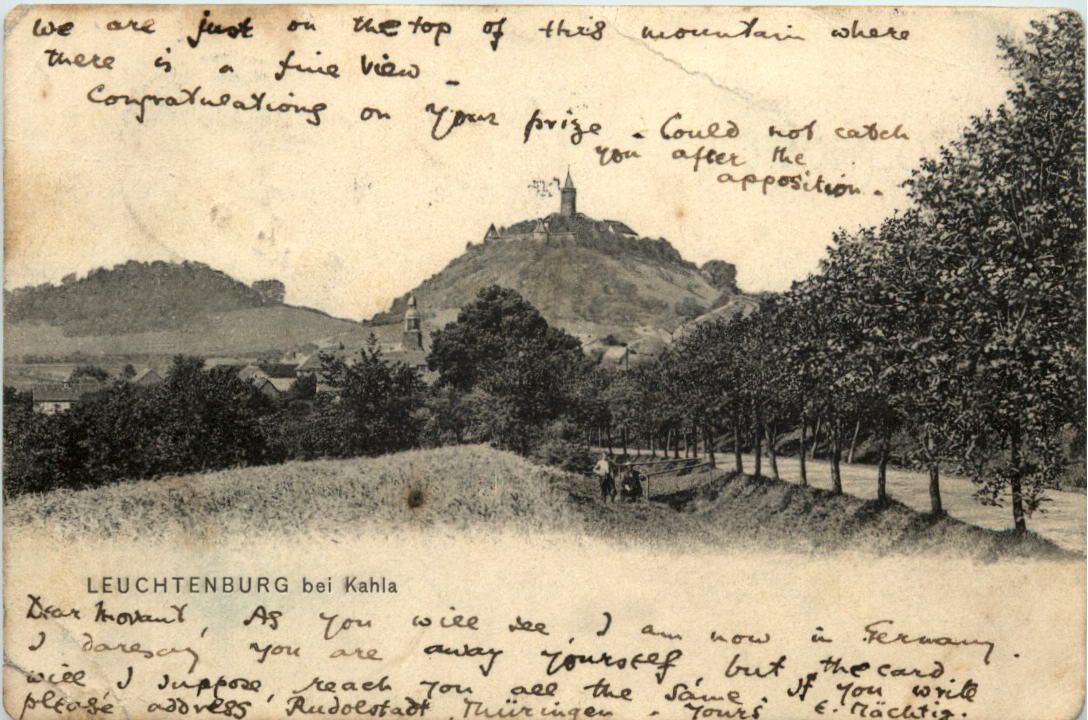 we are just on the top of this mountain where
there is a fine view.
Congratulations on your prize. Could not catch
you after the
apposition.
LEUCHTENBURG bei Kahla
Dear Movant, As you will see, I am now in Germany.
I daresay you are away yourself, but the card
will I suppose, reach you all the same. If you write
please address Rudolstadt, Thüringen. Yours E. Mächtig.